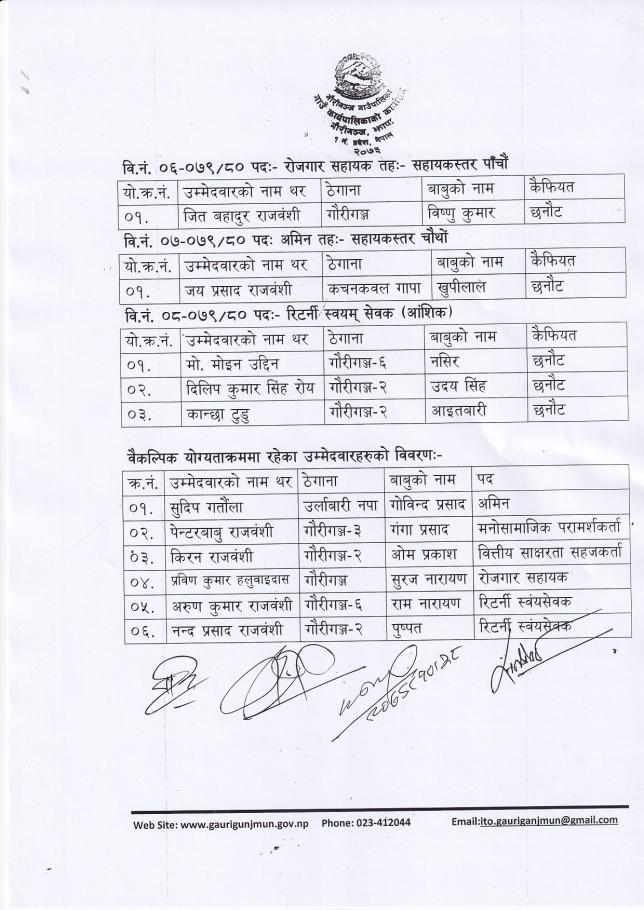 गौरीगञ्ज गाउँपालिका
गाउँ कार्यपालिकाको कार्यालय
गौरीगञ्ज, झापा
१ नं. प्रदेश, नेपाल
२०७३
वि.नं. ०६-०७९/८० पदः- रोजगार सहायक तहः- सहायकस्तर पाँचौं
यो.क्र.नं. उम्मेदवारको नाम थर ठेगाना बाबुको नाम कैफियत
०१. जित बहादुर राजवंशी गौरीगञ्ज विष्णु कुमार छनौट
वि.नं. ०७-०७९/८० पदः अमिन तहः- सहायकस्तर चौथों
यो.क्र.नं. उम्मेदवारको नाम थर ठेगाना बाबुको नाम कैफियत
०१. जय प्रसाद राजवंशी कचनकवल गापा खुपीलाल छनौट
वि.नं. ०८-०७९/८० पदः- रिटर्नी स्वयम् सेवक (आंशिक)
यो.क्र.नं. उम्मेदवारको नाम थर ठेगाना बाबुको नाम कैफियत
०१. मो. मोइन उद्दिन गौरीगञ्ज-६ नसिर छनौट
०२. दिलिप कुमार सिंह रोय गौरीगञ्ज-२ उदय सिंह छनौट
०३. कान्छा टुडु गौरीगञ्ज-२ आइतबारी छनौट
वैकल्पिक योग्यताक्रममा रहेका उम्मेदवारहरुको विवरणः-
क्र.नं. उम्मेदवारको नाम थर ठेगाना बाबुको नाम पद
०१. सुदिप गतौंला उर्लाबारी नपा गोविन्द प्रसाद अमिन
०२. पेन्टरबाबु राजवंशी गौरीगञ्ज-३ गंगा प्रसाद मनोसामाजिक परामर्शकर्ता
०३. किरन राजवंशी गौरीगञ्ज-२ ओम प्रकाश वित्तीय साक्षरता सहजकर्ता
०४. प्रविण कुमार हलुवाइदास गौरीगञ्ज सुरज नारायण रोजगार सहायक
०५. अरुण कुमार राजवंशी गौरीगञ्ज-६ राम नारायण रिटर्नी स्वंयसेवक
०६. नन्द प्रसाद राजवंशी गौरीगञ्ज-२ पुष्पत रिटर्नी स्वंयसेवक
Web Site: www.gaurigunjmun.gov.np Phone: 023-412044 Email:ito.gauriganjmun@gmail.com